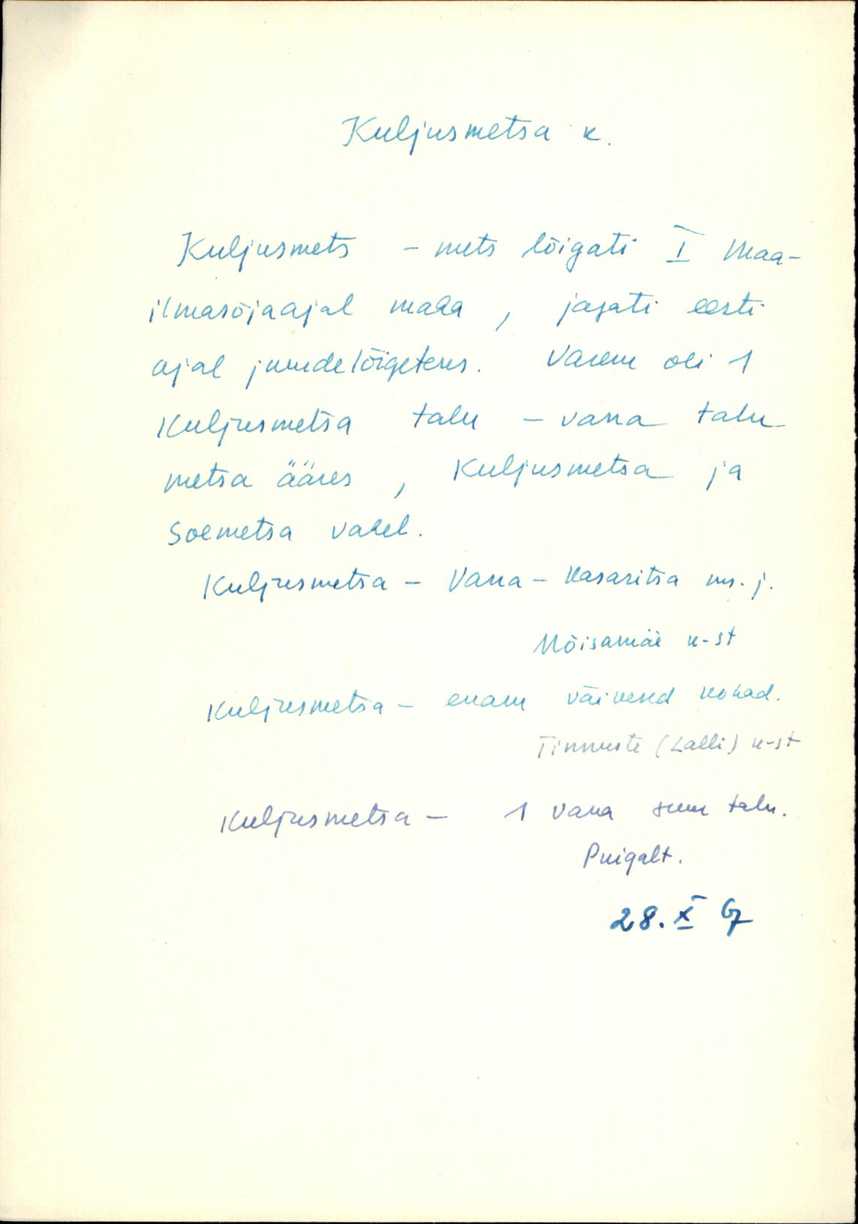 Kuljusmetsa k.
Kuljusmets – mets lõigati I Maa-
ilmasõjaajal maha, jagati eesti
ajal juurdelõigeteks. Varem oli 1
Kuljusmetsa talu – vana talu
metsa ääres, Kuljusmetsa ja
Soemetsa vahel.
Kuljusmetsa – Vana-Kasaritsa
Mõisamäe k-st
Kuljusmetsa – enam väikend kohad.
(Lalli) k-st
Kuljusmetsa – 1 vana suur talu.
Puigalt.
28. X 67